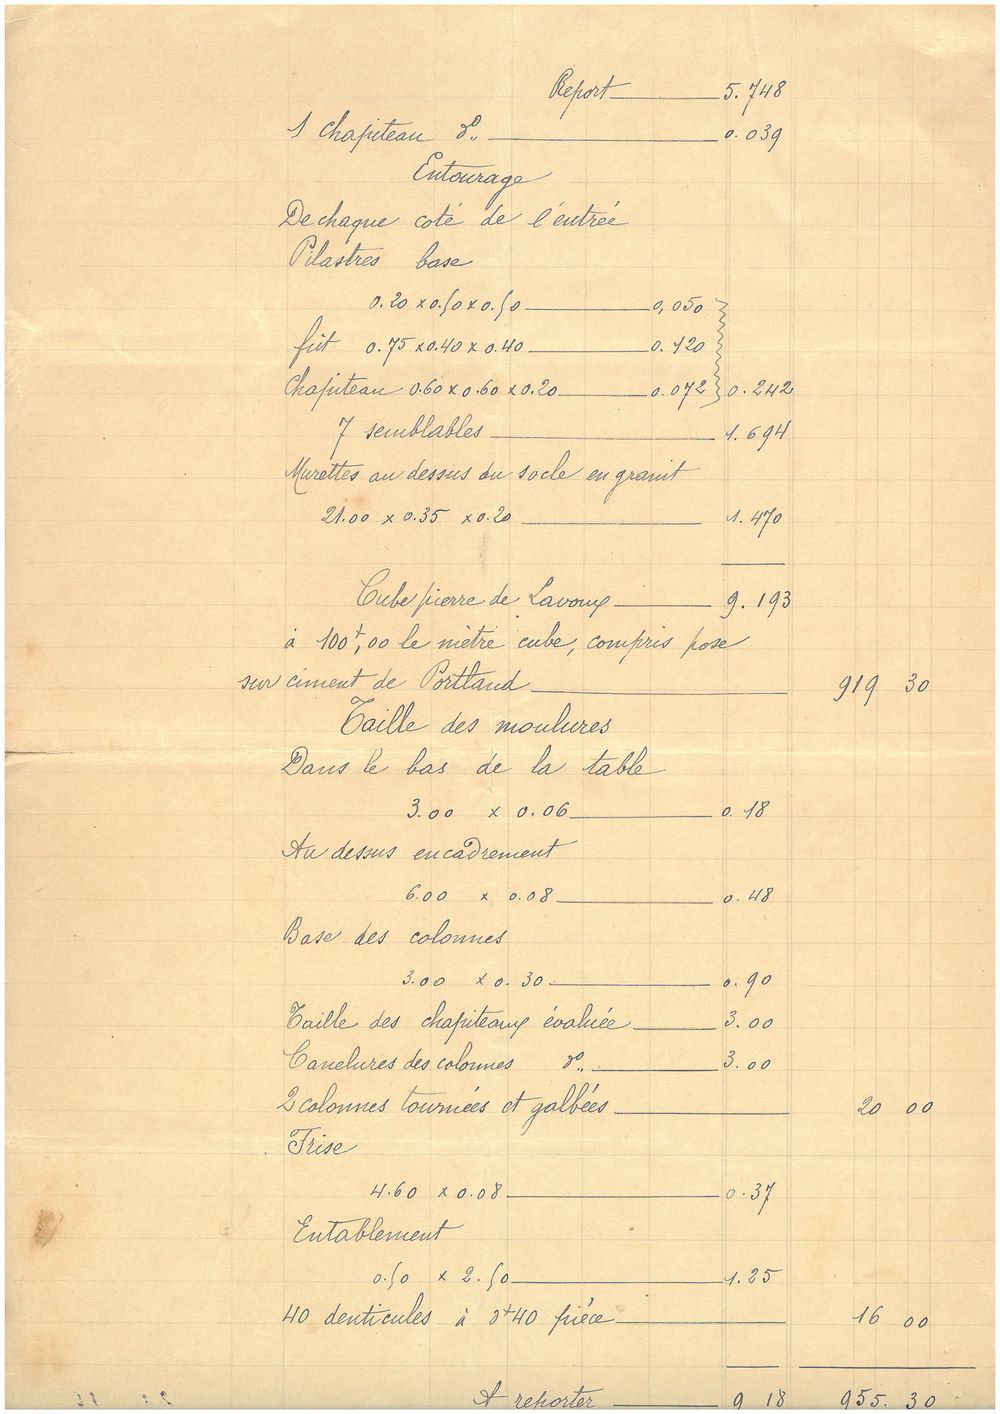 Report 5.748
1 chapiteau d° 0.039
Entourage
De chaque coté de l'entrée
Pilastres base
0.20 x 0.50 x 0.50 0,050
fût 0.75 x 0.40 x 0.40 0.120
Chapiteau 0.60 x 0.60 x 0.20 0.072 0.242
7 semblables 1.694
Murettes au dessus du socle en granit
21.00 x 0.35 x 0.20 1.470
Cube pierre de Lavoux 9.193
à 100f,00 le mètre cube, compris pose
sur ciment de Portland 919 30
Taille des moulures
Dans le bas de la table
3.00 x 0.06 0.18
Au dessus encadrement
6.00 x 0.08 0.48
Base des colonnes
3.00 x 0.30 0.90
Taille des chapiteaux évaluée 3.00
Canelures des colonnes d° 3.00
2 colonnes tournées et galbées 20 00
Frise
4.60 x 0.08 0.37
Entablement
0.50 x 2.50 1.25
40 denticules à 0f40 pièce 16 00
A reporter 9 18 955.30